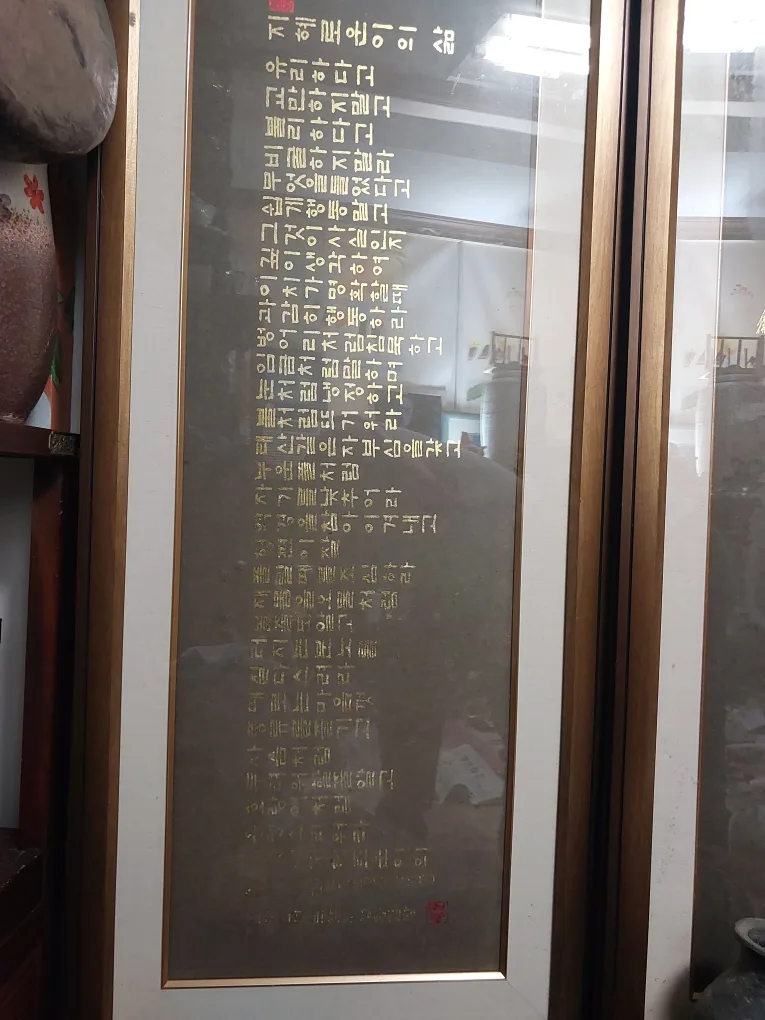 지혜로운이의 삶
유리하다고
교만하지말고
불리하다고
비굴하지말라
무엇을들었다고
쉽게행동말고
그것이사실인지
깊이생각하여
이치가명확할때
과감히행동하라
벙어리처럼침묵하고
임금처럼말하며
눈처럼냉정하고
불처럼뜨거워라
태산같은자부심을갖고
누운풀처럼
자기를낮추어라
역경을참아이겨내고
형편이잘
풀릴때를조심하라
재물을오물처럼
볼줄도알고
터지는분노를
잘다스려라
때로는마음껏
풍류를즐기고
사슴처럼
두려워할줄알고
호랑이처럼